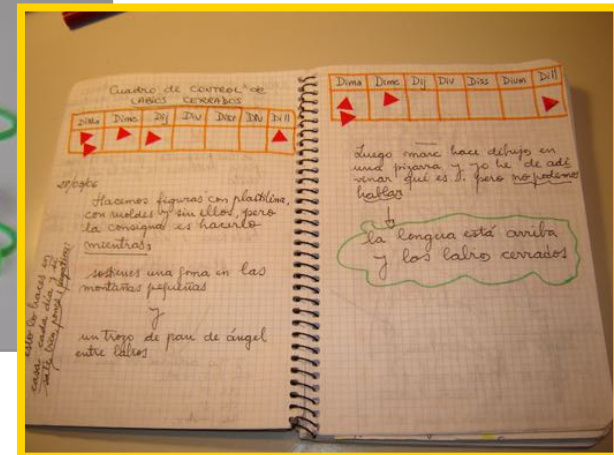 Cuadro de CONTROL de
LABIOS CERRADOS
Dima Dime Dij Div Diss Diu Dill
Hacemos figuras con plastilina,
con moldes y sin ellos, pero
la consigna es hacerlo
mientras,
sostienes una goma en las
montañas pequeñas
y
un trozo de pan de ángel
entre labios
esto lo haces en
casa cada día y si
sale bien pones 1 pegatina
Dima Dime Dij Div Diss Dium Dill
Luego marc hace dibujo en
una pizarra y yo he de adi
vinar qué es. pero no podemos
hablar
la lengua está arriba
y los labios cerrados